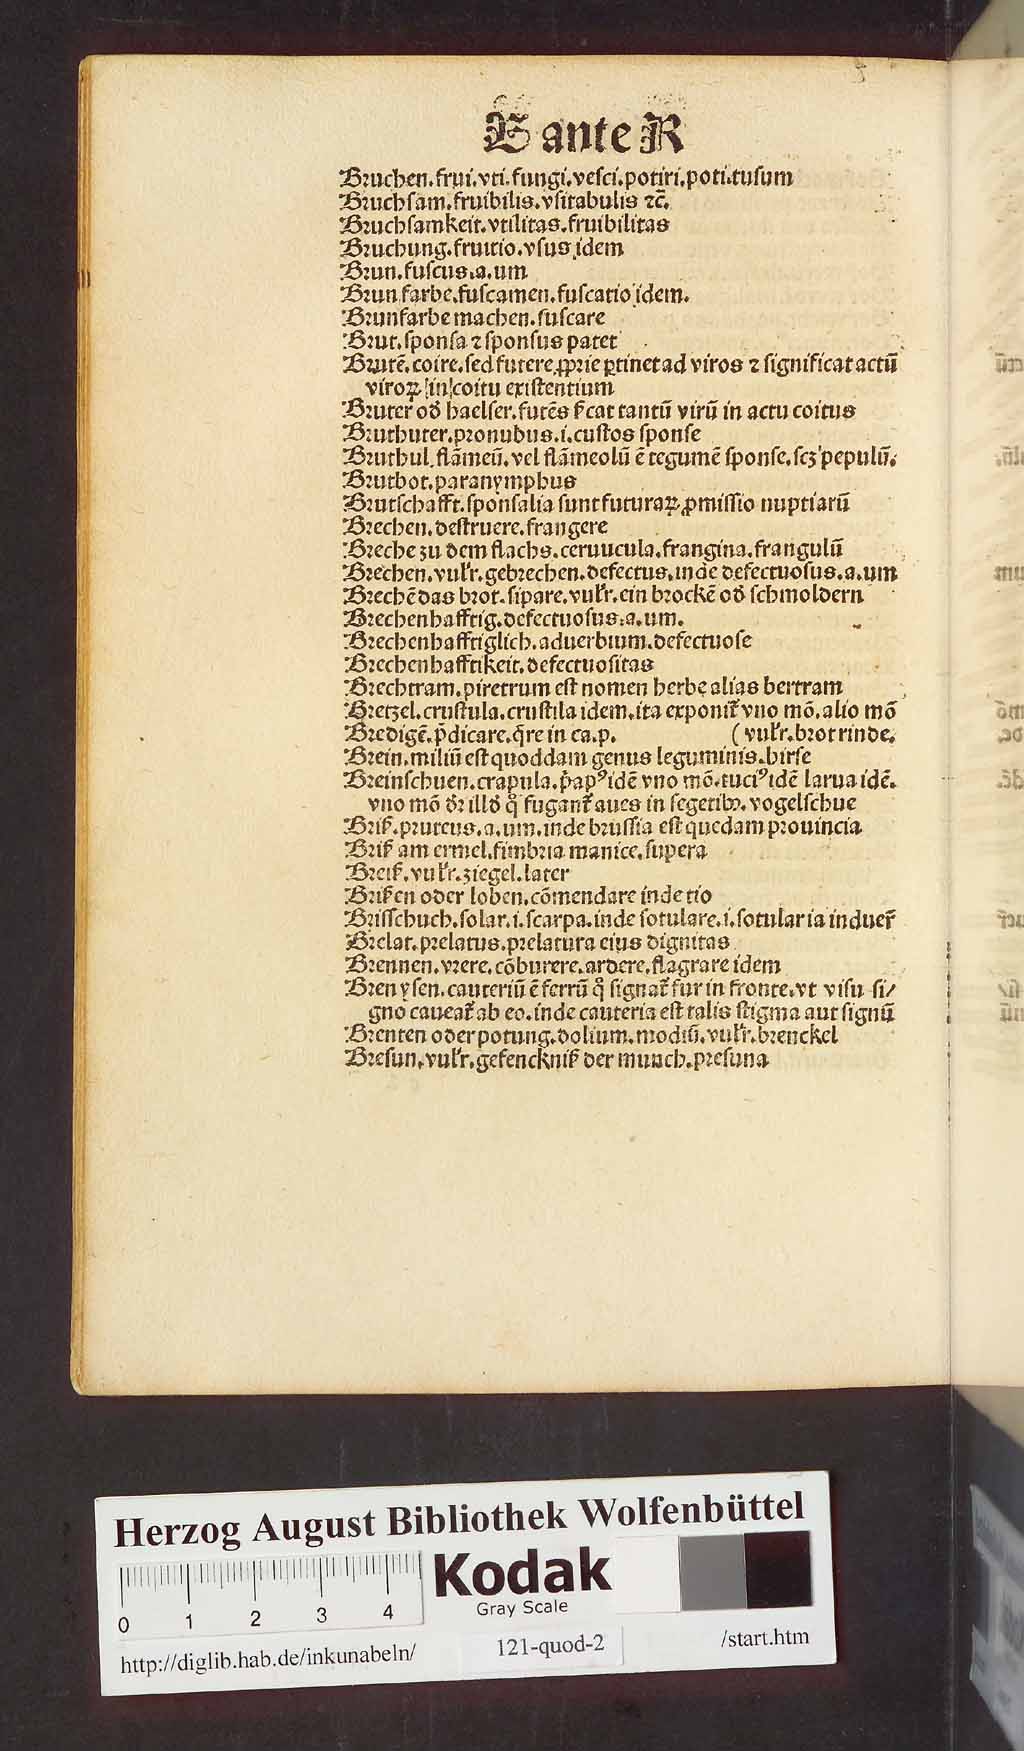 B ante R
Bruchen.frui.vti.fungi.vesci.potiri.poti.tusum
Bruchsam.fruibilis.vsitabulis ⁊c̄.
Bruchsamkeit.vtilitas.fruibilitas
Bruchung.fruitio.vsus idem
Brun.fuscus.a.um
Brun farbe.fuscamen.fuscatio idem.
Brunfarbe machen.fuscare
Brut.sponsa ⁊ sponsus patet
Brutē.coire.sed futere ꝓprie ꝑtinet ad viros ⁊ significat actū
viroꝝ in coitu existentium
Bruter od̕ haelser.futēs cat tantū virū in actu coitus
Bruthuter.pronubus.i.custos sponse
Bruthul.flāmeū.vel flāmeolū ē tegumē sponse.scꝫ pepulū.
Brutbot.paranymphus
Brutschafft.sponsalia sunt futuraꝝ ꝓmissio nuptiarū
Brechen.destruere.frangere
Breche zu dem flachs.ceruucula.frangina.frangulū
Brechen.vulr̕.gebrechen.defectus.inde defectuosus.a.um
Brechē das brot.sipare.vulr̕.ein brockē od̕ schmoldern
Brechenhafftig.defectuosus.a.um.
Brechenhafftiglich.aduerbium.defectuose
Brechenhafftikeit.defectuositas
Brechtram.piretrum est nomen herbe alias bertram
Bretzel.crustula.crustila idem.ita exponit̕ vno mō.alio mō
Bredigē.p̄dicare.q̄re in ca.p. (vulr̕.brotrinde.
Brein.miliū est quoddam genus leguminis.hirse
Breinschuen.crapula.p̄apꝰ idē vno mō.tuciꝰ idē larua idē.
vno mō illd̕ fugant̕ aues in segetibꝫ.vogelschue
Briß.pruteus.a.um.inde brussia est quedam prouincia
Briß am ermel.fimbria manice.supera
Breiß.vulr̕.ziegel.later
Brißen oder loben.cōmendare inde tio
Brisschuch.solar.i.scarpa.inde sotulare.i.sotularia induer̕
Brelat.prelatus.prelatura eius dignitas
Brennen.vrere.cōburere.ardere.flagrare idem
Brenysen.cauteriū ē ferrū q̄ signat̕ fur in fronte.vt visu si/
gno caueat̕ ab eo.inde cauteria est talis stigma aut signū
Brenten oder potung.dolium.modiū.vulr̕.brenckel
Bresun.vulr̕.gefenckniß der munch.presuna
Herzog August Bibliothek Wolfenbüttel
0 1 2 3 4
Kodak
Gray Scale
http://diglib.hab.de/inkunabeln/ 121-quod-2 /start.htm